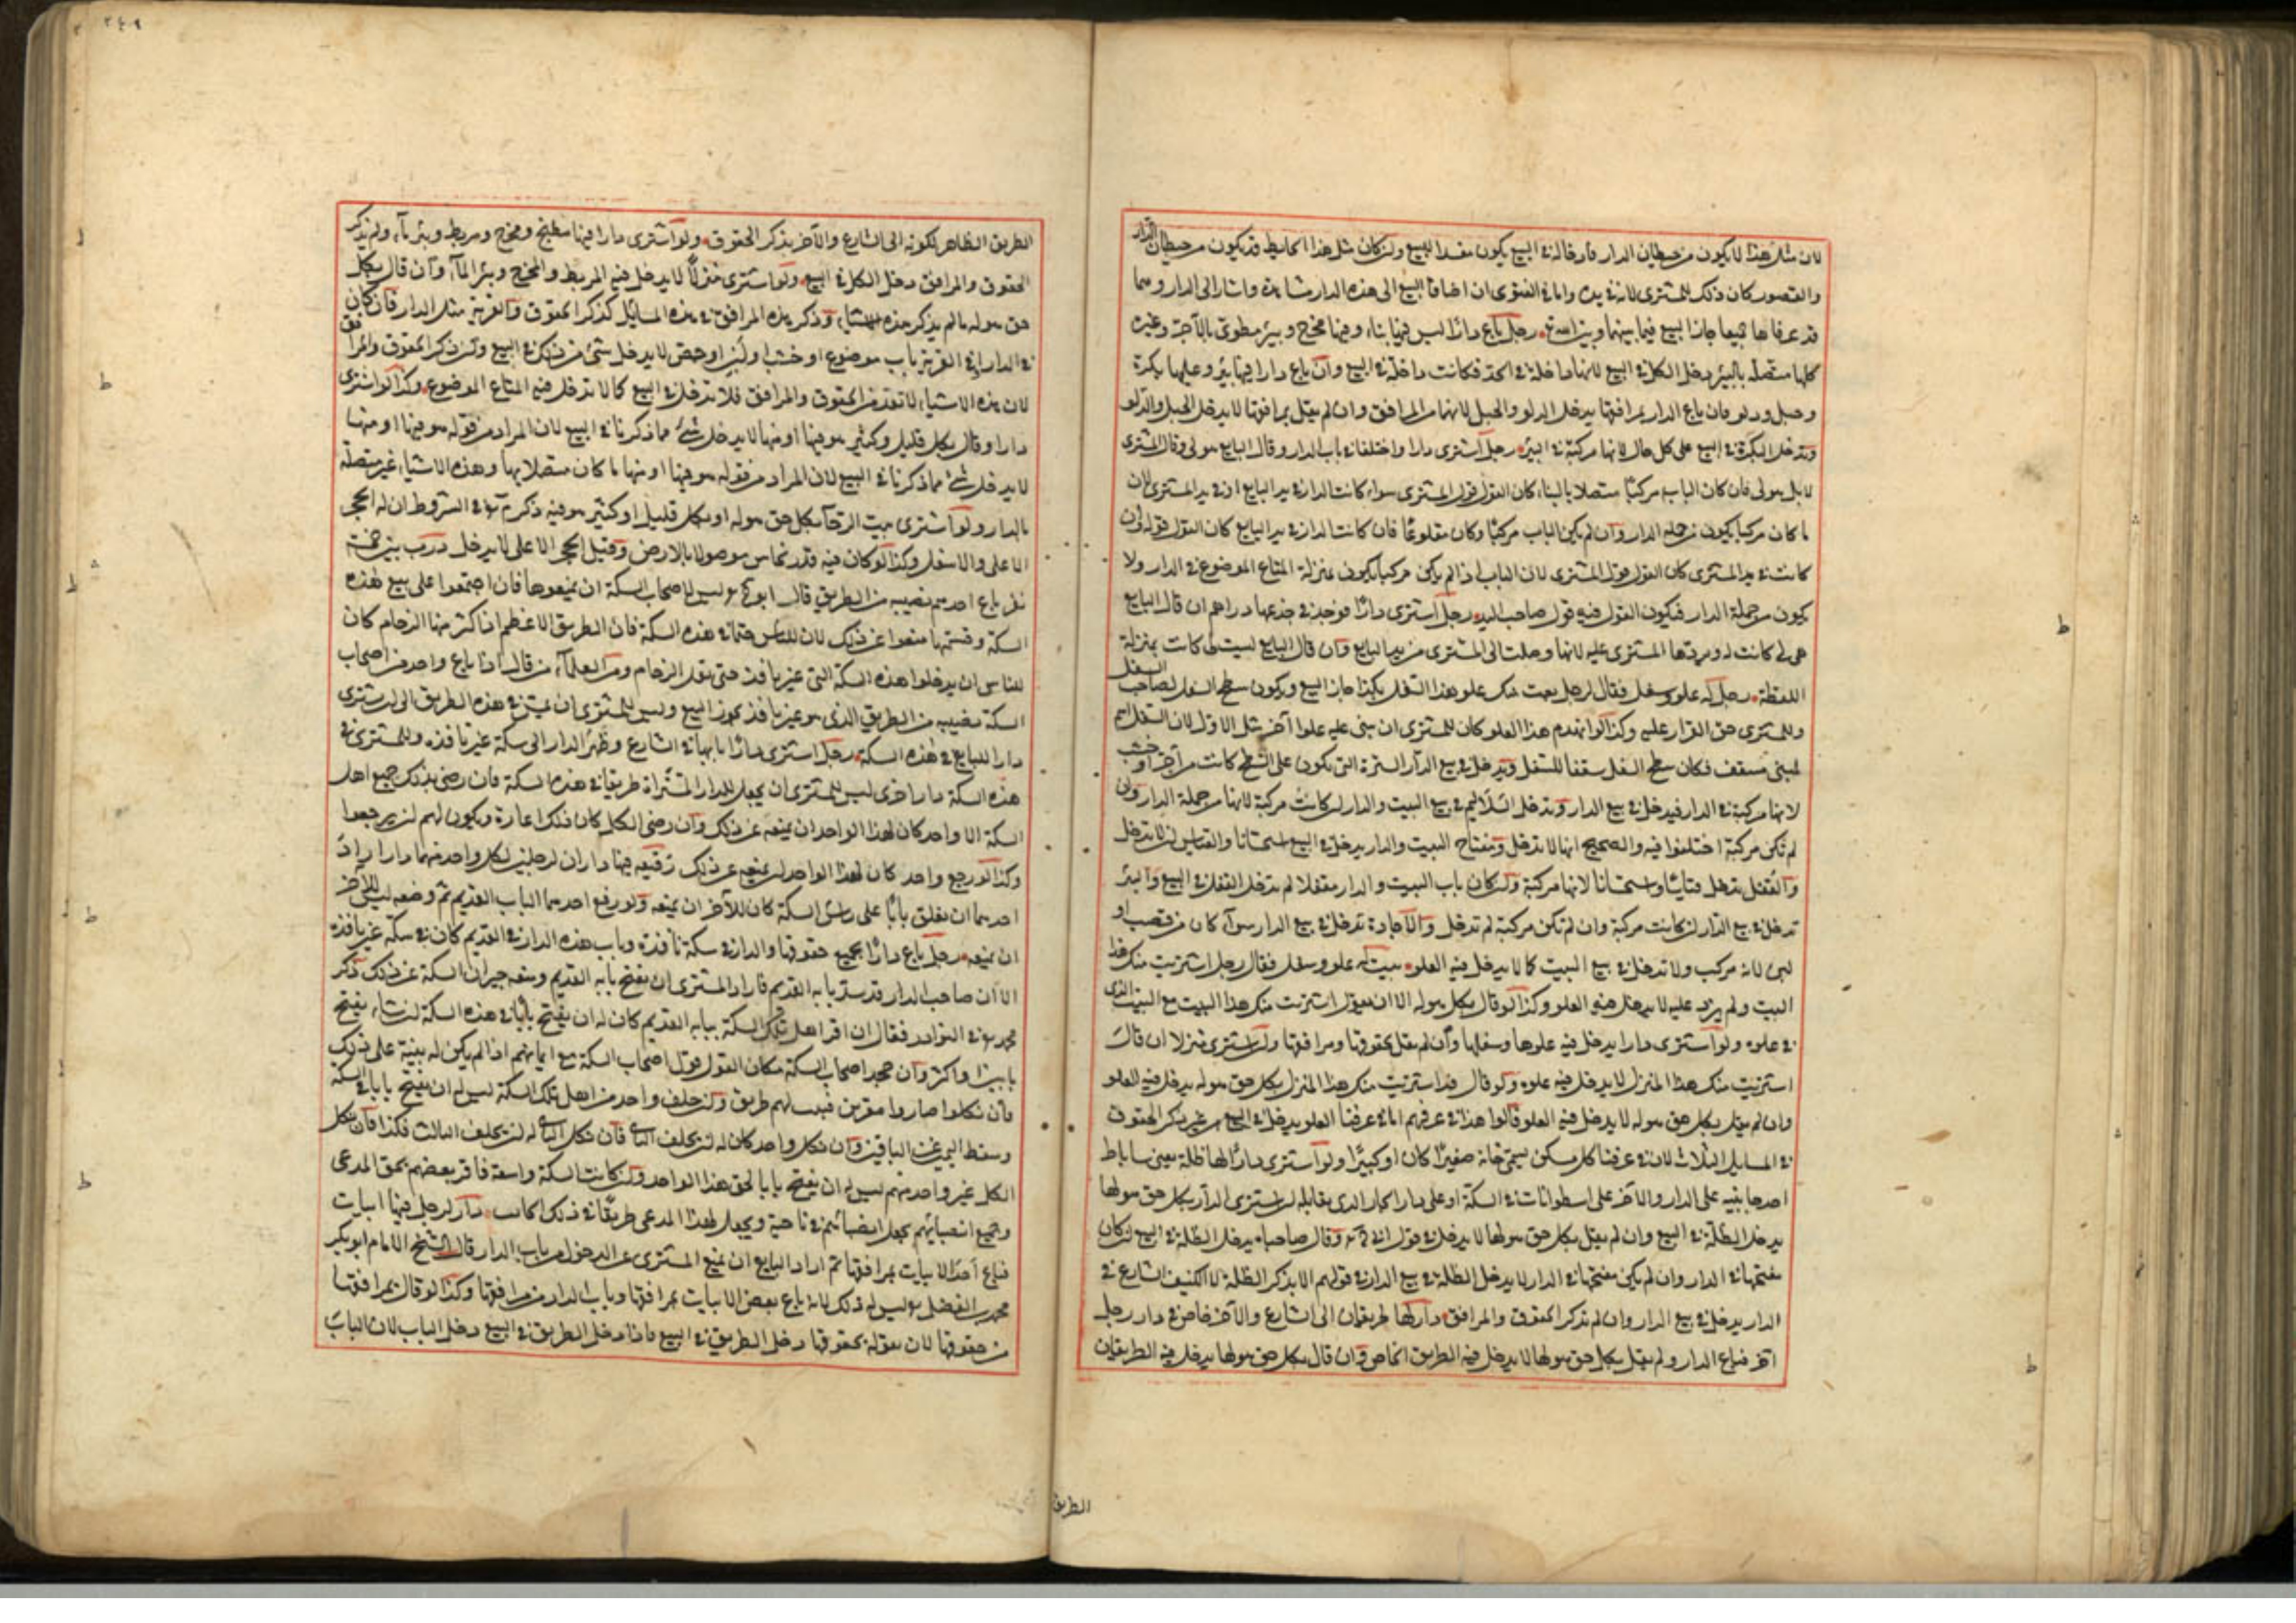 لان مثل هذا لا يكون من حيطان الدار فادخاله في البيع يكون مفسدا للبيع وان كان مثل هذا الحايط قد يكون من حيطان الدار
والقصور كان ذلك للمشترى لانه في يده واما في الفتوى ان اضافا البيع الى هذه الدار مشاهدة واشارا الى الدار وهما
قد عرفاها جميعا جاز البيع فيما بينهما وبين الله تعالى رجل باع دارا ليس فيها بناء وفيها مخرج وبير مطوى بالآجر وغيره
كلها متصلة بالبير دخل الكل في البيع لانها داخلة في الحد فكانت داخلة في البيع وان باع دارا فيها بئر وعليها بكرة
وحبل ودلو فان باع الدار بمرافقها يدخل الدلو والحبل لانهما من المرافق وان لم يقل بمرافقها لا يدخل الحبل والدلو
وتدخل البكرة في البيع على كل حال لانها مركبة في البئر رجل اشترى دارا واختلفا في باب الدار وقال البايع هو لى وقال المشترى
لا بل هو لى فان كان الباب مركبا متصلا بالبناء كان القول قول المشترى سواء كانت الدار في يد البايع او في يد المشترى لان
ما كان مركبا يكون من جملة الدار وان لم يكن الباب مركبا وكان مقلوعا فان كانت الدار في يد البايع كان القول قوله وان
كانت في يد المشترى كان القول قول المشترى لان الباب اذا لم يكن مركبا يكون بمنزلة المتاع الموضوع في الدار ولا
يكون من جملة الدار فيكون القول فيه قول صاحب اليد رجل اشترى دارا فوجد في جذعها دراهم ان قال البايع
هى لى كانت له ويردها المشترى عليه لانها وصلت الى المشترى من يد البايع وان قال البايع ليست لى كانت بمنزلة
اللقطة رجل له علو وسفل فقال لرجل بعت منك علو هذا السفل بكذا جاز البيع ويكون سطح السفل لصاحب السفل
وللمشترى حق القرار عليه وكذا لو انهدم هذا العلو كان للمشترى ان يبنى عليه علوا آخر مثل الاول لان السفل اسم
لمبنى مسقف فكان سطح السفل سقفا للسفل وتدخل في بيع الدار السترة التى يكون على السطح كانت من آجر او خشب
لانها مركبة في الدار فيدخل في بيع الدار وتدخل السلاليم في بيع البيت والدار ان كانت مركبة لانها من جملة الدار وان
لم تكن مركبة اختلفوا فيه والصحيح انها لا تدخل ومفتاح البيت والدار يدخل في البيع استحسانا والقياس ان لا تدخل
والقفل يدخل قياسا واستحسانا لانها مركبة وان كان باب البيت والدار مقفلا لم تدخل القفل في البيع والبئر
تدخل في بيع الدار ان كانت مركبة وان لم تكن مركبة لم تدخل والاجارة تدخل في بيع الدار سواء كان من قصب او
لبن لانه مركب ولا تدخل في بيع البيت كما لا يدخل فيه العلو بيت له علو وسفل فقال رجل اشتريت منك هذا
البيت ولم يزد عليه لا يدخل فيه العلو وكذا لو قال بكل هو له الا ان يقول اشتريت منك هذا البيت مع البيت الذى
في علوه ولو اشترى دارا يدخل فيه علوها وسفلها وان لم يقل بحقوقها ومرافقها وان اشترى منزلا ان قال
اشتريت منك هذا المنزل لا يدخل فيه علوه ولو قال قد اشتريت منك هذا المنزل بكل حق هو له يدخل فيه العلو
وان لم يقل بكل حق هو له لا يدخل فيه العلو قالوا هذا في عرفهم اما في عرفنا العلو يدخل في البيع من غير ذكر الحقوق
في المسايل الثلاث لان في عرفنا كل مسكن يسمى خانه صغيرا كان او كبيرا ولو اشترى دارا لها ظلة يعنى ساباط
احد جانبيه على الدار والآخر على اسطوانات في السكة او على دار الجار الذى يقابله ان اشترى الدار بكل حق هو لها
يدخل الظلة في البيع وان لم يقل بكل حق هو لها لا يدخل في قول ابى ح وقال صاحباه يدخل الظلة في البيع ان كان
مفتحها في الدار وان لم يكن مفتحها في الدار لا يدخل الظلة في بيع الدار في قولهم الا بذكر الظلة لا الكنيف الشارع في
الدار يدخل في بيع الدار وان لم تذكر الحقوق والمرافق دار لها طريقان الى الشارع والآخر خاص في دار رجل
آخر فباع الدار ولم يقل بكل حق هو لها لا يدخل فيه الطريق الخاص وان قال بكل حق هو لها يدخل فيه الطريقان
الطريق
٢٤٩
الطريق الظاهر لكونه الى الشارع والآخر بذكر الحقوق ولو اشترى دارا فيها مطبخ ومخرج ومربط وبئر ماء ولم يذكر
الحقوق والمرافق دخل الكل في البيع ولو اشترى منزلا لا يدخل فيه المربط والمخرج وبئر الماء وان قال بكل
حق هو له ما لم يذكر هذه الاشياء وذكر هذه المرافق في هذه المسايل كذكر الحقوق والقرية مثل الدار فان كان
في الدار او في القرية باب موضوع او خشب او لبن او جص لا يدخل شئ من ذلك في البيع وان ذكر الحقوق والمرافق
لان هذه الاشياء لا تعد من الحقوق والمرافق فلا تدخل في البيع كما لا تدخل فيه المتاع الموضوع وكذا لو اشترى
دارا وقال بكل قليل وكثير هو فيها او منها لا يدخل شئ مما ذكرنا في البيع لان المراد من قوله هو فيها او منها
لا يدخل شئ مما ذكرنا في البيع لان المراد من قوله هو فيها او منها ما كان متصلا بها وهذه الاشياء غير متصلة
بالدار ولو اشترى بيت الرحا بكل حق هو له او بكل قليل او كثير هو فيه ذكر في الشروط ان له الحجر
الاعلى والاسفل وكذا لو كان فيه قدر نحاس موصولا بالارض وقيل الحجر الاعلى لا يدخل درب بين خمسة
نفر باع احدهم نصيبه من الطريق قال ابو ح ليس لاصحاب السكة ان يمنعوها فان اجتمعوا على بيع هذه
السكة وقسمتها منعوا عن ذلك لان للناس حقا في هذه السكة فان الطريق الاعظم اذا كثر منها الزحام كان
للناس ان يدخلوا هذه السكة التى غير نافذ حتى يقل الزحام ومن العلماء من قال اذا باع واحد من اصحاب
السكة نصيبه من الطريق الذى هو غير نافذ يجوز البيع وليس للمشترى ان يمر في هذه الطريق الى ان يشترى
دارا للبايع في هذه السكة رجل اشترى دارا بابها في الشارع وظهر الدار الى سكة غير نافذه وللمشترى في
هذه السكة دار اخرى ليس للمشترى ان يجعل للدار المشتراة طريقا في هذه السكة فان رضى بذلك جميع اهل
السكة الا واحد كان لهذا الواحد ان يمنعه عن ذلك وان رضى الكل كان ذلك اعارة ويكون لهم ان يرجعوا
وكذا لو رجع واحد كان لهذا الواحد ان يمنعه عن ذلك زقيقه فيها داران لرجلين لكل واحد منهما دارا اراد
احدهما ان يغلق بابا على راس السكة كان للآخر ان يمنعه ولو رفع احدهما الباب القديم ثم وضعه ليس للآخر
ان يمنعه رجل باع دارا بجميع حقوقها والدار في سكة نافذه وباب هذه الدار في القديم كان في سكة غير نافذه
الا ان صاحب الدار قد ستر بابه القديم فاراد المشترى ان يفتح بابه القديم ومنعه جيران السكة عن ذلك ذكر
محمد في النوادر فقال ان اقر اهل تلك السكة ببابه القديم كان له ان يفتح بابا في هذه السكة ان شاء يفتح
بابين او اكثر وان جحد اصحاب السكة فكان القول قول اصحاب السكة مع ايمانهم اذا لم يكن له بينة على ذلك
فان نكلوا صاروا مقرين فيه لهم طريق وان حلف واحد من اهل تلك السكة ليس له ان يفتح بابا في السكة
وسقط اليمين عن الباقين وان نكل واحد كان له ان يحلف الثانى فان نكل الثانى له ان يحلف الثالث فكذا فان نكل
الكل غير واحد منهم ليس له ان يفتح بابا لحق هذا الواحد وان كانت السكة واسعة فاقر بعضهم بحق المدعى
وجميع انصبائهم يجعل انصبائهم في ناحية ويجعل لهذا المدعى طريقا في ذلك الجانب دار لرجل فيها ابيات
فباع احد الابيات بمرافقها ثم اراد البايع ان يمنع المشترى عن الدخول من باب الدار قال الشيخ الامام ابو بكر
محمد بن الفضل ليس له ذلك لانه باع بعض الابيات بمرافقها وباب الدار من مرافقها وكذا لو قال بمرافقها
من حقوقها لان بقوله بحقوقها دخل الطريق في البيع فاذا دخل الطريق في البيع دخل الباب لان الباب